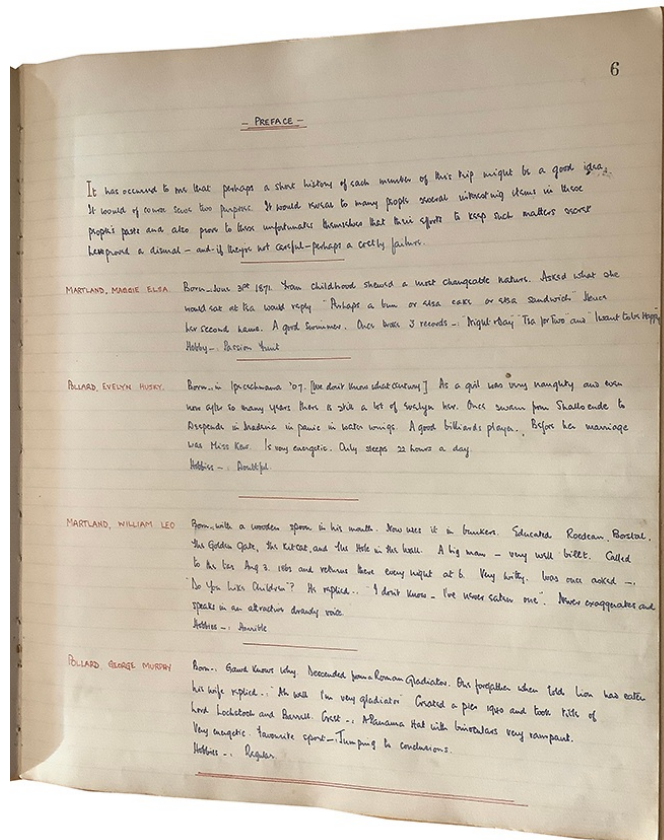 6
- PREFACE -
It has occurred to me that perhaps a short history of each member of this trip might be a good idea.
It would of course serve two purposes. It would reveal to many people several interesting items in these
people's pasts and also prove to these unfortunates themselves that their efforts to keep such matters secret
have proved a dismal - and if theyre not careful - perhaps a costly failure.
MARTLAND, MAGGIE ELSA. Born.. June 3rd 1871. From childhood shewed a most changeable nature. Asked what she
would eat at tea would reply "Perhaps a bun or elsa cake or elsa sandwich" Hence
her second name. A good swimmer. Once broke 3 records -. "Night & Day" "Tea for Two" and "I want to be Happy
Hobby -. Passion Fruit
POLLARD, EVELYN HUSKY. Born.. in '07. [We don't know what century] As a girl was very naughty and even
now after so many years there is still a lot of Evelyn her. Once swam from Shallowende to
Deepende in Madeira in panic in water wings. A good billiards player. Before her marriage
was Miss Kew. Is very energetic. Only sleeps 22 hours a day.
Hobbies -. Doubtful.
MARTLAND, WILLIAM LEO Born.. with a wooden spoon in his mouth. Now uses it in bunkers. Educated Roedean, Borstal,
the Golden Gate, the Kitcat, and the Hole in the Wall. A big man - very well built. Called
to the bar Aug 3. 1862 and returns there every night at 6. Very witty. Was once asked -.
"Do You Like Children"? He replied.. "I don't know - I've never eaten one". Never exaggerates and
speaks in an attractive dreamy voice.
Hobbies -. Horrible
POLLARD, GEORGE MURPHY Born.. Gawd Knows Why. Descended from a Roman Gladiator. One forefather when told lion had eaten
his wife replied.. "Ah well I'm very gladiator" Created a pier 1940 and took title of
Lord Lockstock and Barrell. Crest -. A Panama Hat with binoculars very rampant.
Very energetic. Favourite sport - Jumping to conclusions.
Hobbies -. Regular.